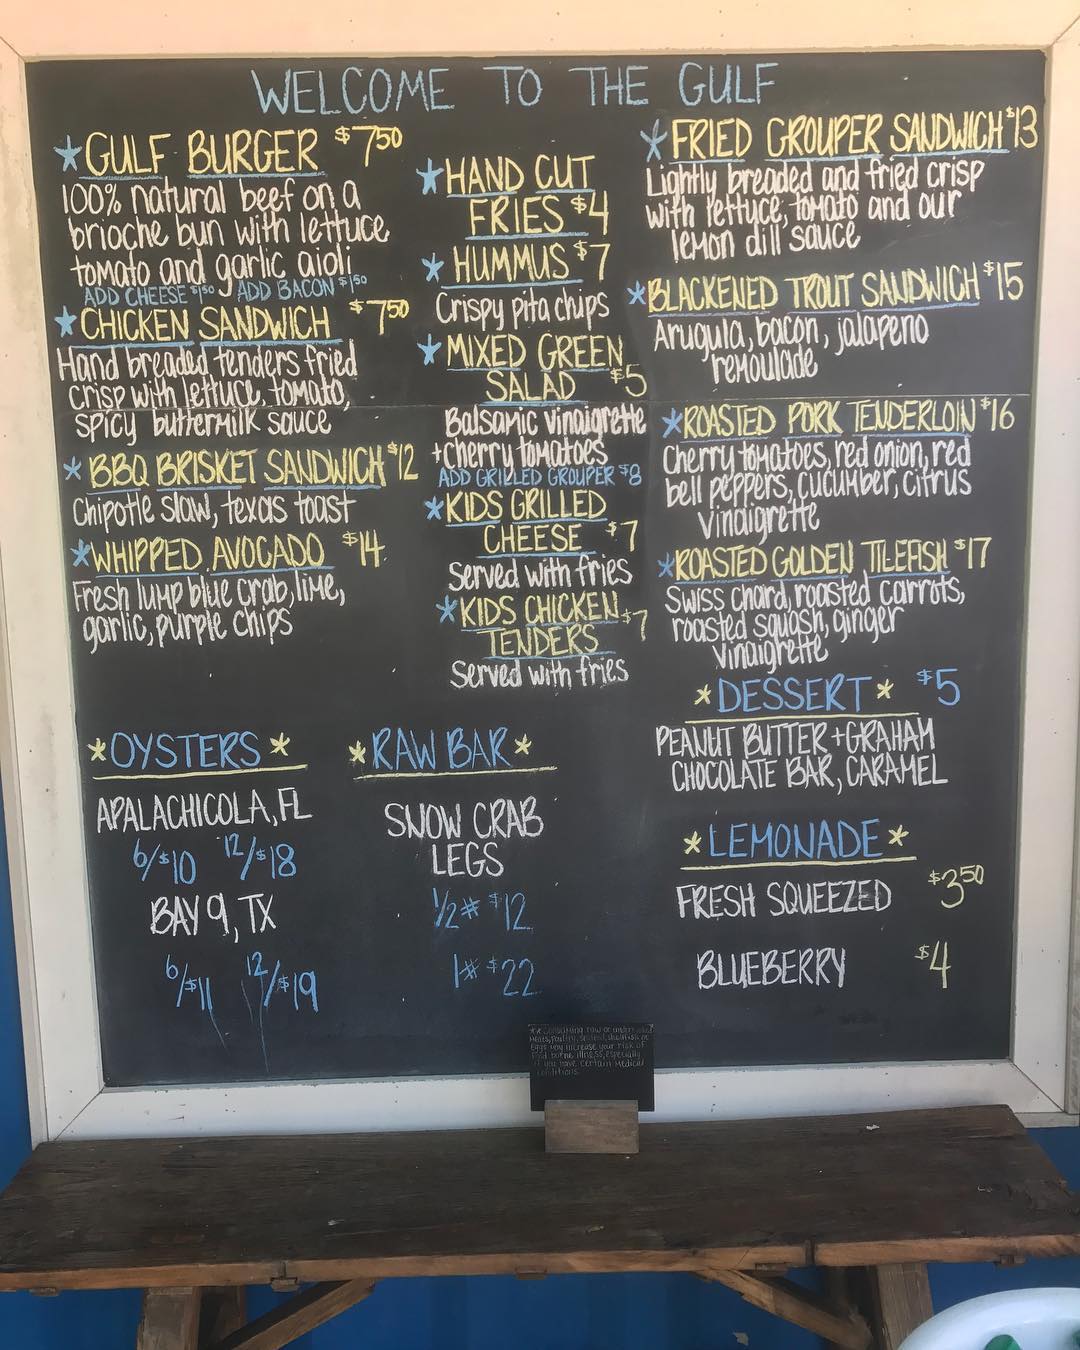 WELCOME TO THE GULF
*GULF BURGER $7.50
100% natural beef on a
brioche bun with lettuce
tomato and garlic aioli
ADD CHEESE $1.50 ADD BACON $1.50
*CHICKEN SANDWICH $7.50
Hand breaded tenders fried
crisp with lettuce, tomato,
spicy buttermilk sauce
*BBQ BRISKET SANDWICH $12
Chipotle slaw, texas toast
*WHIPPED AVOCADO $14
Fresh lump blue crab, lime,
garlic, purple chips
*HAND CUT
FRIES $4
*HUMMUS $7
Crispy pita chips
*MIXED GREEN
SALAD $5
Balsamic vinaigrette
+cherry tomatoes
ADD GRILLED GROUPER $8
*KIDS GRILLED
CHEESE $7
Served with fries
*KIDS CHICKEN
TENDERS $7
Served with fries
*FRIED GROUPER SANDWICH $13
Lightly breaded and fried crisp
with lettuce, tomato and our
lemon dill sauce
*BLACKENED TROUT SANDWICH $15
Arugula, bacon, jalapeno
remoulade
*ROASTED PORK TENDERLOIN $16
Cherry tomatoes, red onion, red
bell peppers, cucumber, citrus
vinaigrette
*ROASTED GOLDEN TILEFISH $17
Swiss chard, roasted carrots,
roasted squash, ginger
vinaigrette
*DESSERT* $5
PEANUT BUTTER+GRAHAM
CHOCOLATE BAR, CARAMEL
*OYSTERS*
APALACHICOLA, FL
6/$10 12/$18
BAY 9, TX
6/$11 12/$19
*RAW BAR*
SNOW CRAB
LEGS
1/2# $12
1# $22
*LEMONADE*
FRESH SQUEEZED $3.50
BLUEBERRY $4
consuming raw or undercooked
Meats, Poultry, Seafood, shellfish or
Eggs may increase your risk of
food borne illness, especially
if you have certain Medical
conditions.